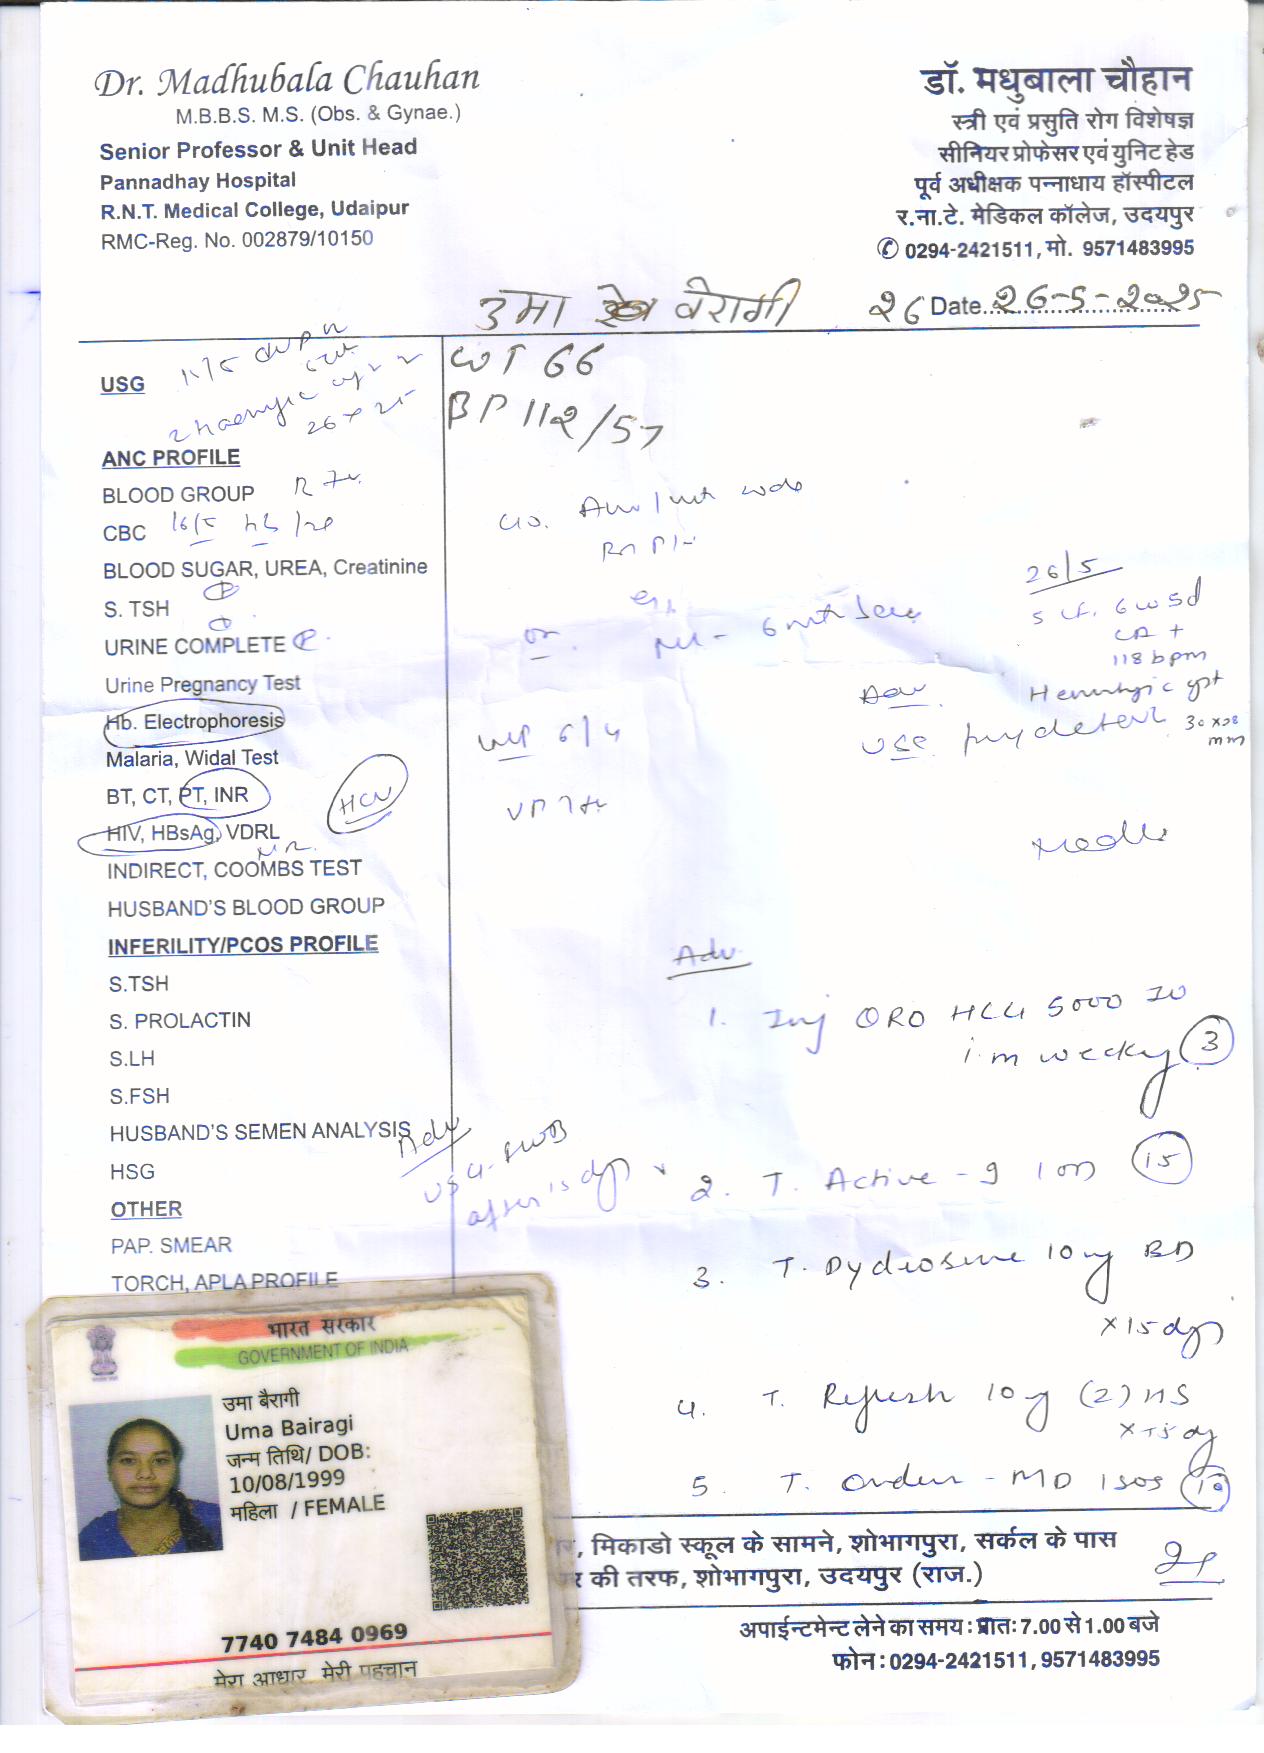 Dr. Madhubala Chauhan
M.B.B.S. M.S. (Obs. & Gynae.)
Senior Professor & Unit Head
Pannadhay Hospital
R.N.T. Medical College, Udaipur
RMC-Reg. No. 002879/10150
डॉ. मधुबाला चौहान
स्त्री एवं प्रसुति रोग विशेषज्ञ
सीनियर प्रोफेसर एवं युनिट हेड
पूर्व अधीक्षक पन्नाधाय हॉस्पीटल
र.ना.टे. मेडिकल कॉलेज, उदयपुर
✆ 0294-2421511, मो. 9571483995
उमा वैरागी
26 Date 26-5-2025
WT 66
BP 112/57
USG 11/5
26 x 25
ANC PROFILE
BLOOD GROUP
CBC 16/5 hb
BLOOD SUGAR, UREA, Creatinine
S. TSH
URINE COMPLETE
Urine Pregnancy Test
Hb. Electrophoresis
Malaria, Widal Test
BT, CT, PT, INR
HCV
HIV, HBsAg, VDRL
INDIRECT, COOMBS TEST
HUSBAND'S BLOOD GROUP
INFERILITY/PCOS PROFILE
S.TSH
S. PROLACTIN
S.LH
S.FSH
HUSBAND'S SEMEN ANALYSIS
HSG
OTHER
PAP. SMEAR
TORCH, APLA PROFILE
26/5
6w 5d
CA +
118 bpm
30 x 28
mm
LMP 6/4
Adv
USG
after 15 days
Adv.
1. Inj ORO HCG 5000 IU
i.m weekly 3
2. T. Active - 9 1 OD 15
3. T. Dydrosure 10mg BD
x 15 days
4. T. 10 mg (2) HS
x 15 days
5. T. - MD 1 SOS 10
भारत सरकार
GOVERNMENT OF INDIA
उमा बैरागी
Uma Bairagi
जन्म तिथि/ DOB:
10/08/1999
महिला / FEMALE
7740 7484 0969
मेरा आधार, मेरी पहचान
, मिकाडो स्कूल के सामने, शोभागपुरा, सर्कल के पास
की तरफ, शोभागपुरा, उदयपुर (राज.)
अपाईन्टमेन्ट लेने का समय : प्रातः 7.00 से 1.00 बजे
फोन : 0294-2421511, 9571483995